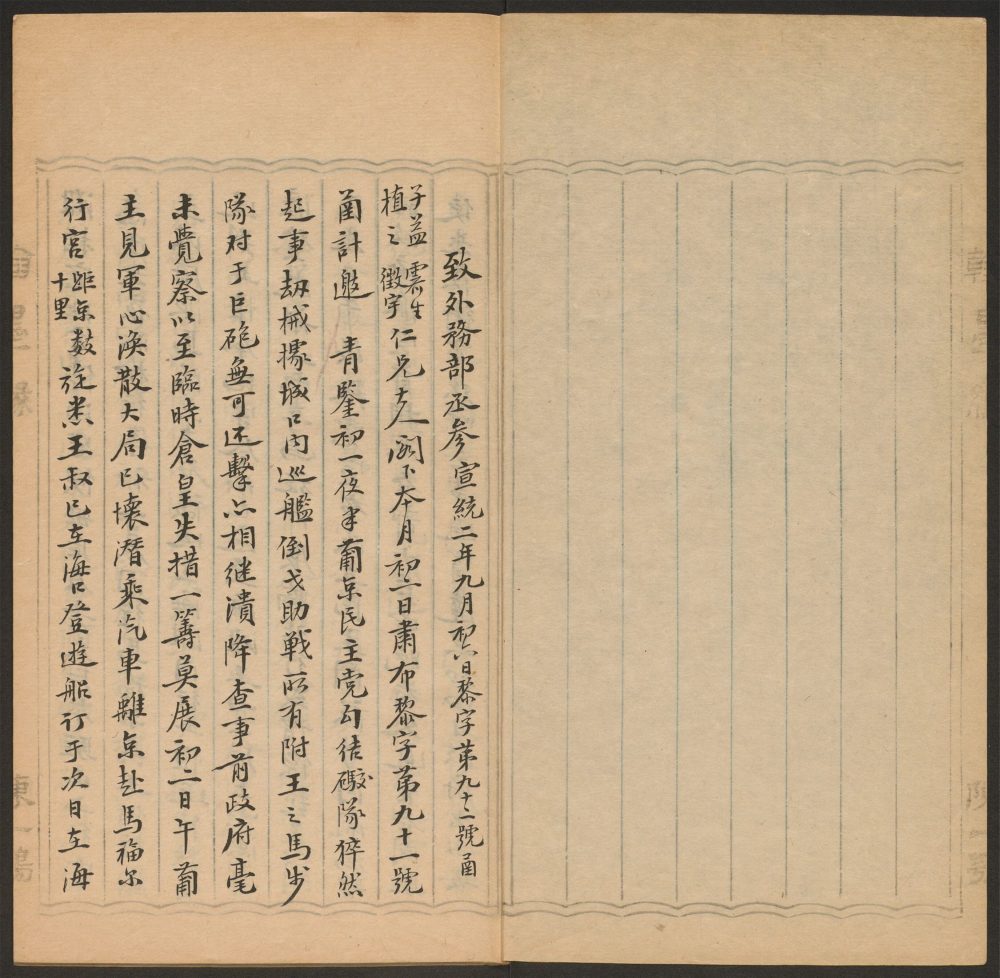 致外務部丞参宣統二年九月初六日黎字第九十二號函
子益 霽生 植之 徵宇 仁兄大人閣下本月初二日肅布黎字第九十一號
函計邀 青鑒初一夜半葡京民主党勾结礮隊猝然
起事刼械據城口内巡艦倒戈助戦所有附王之馬步
隊对于巨砲無可还擊亦相继潰降查事前政府毫
未覺察以至臨時倉皇失措一籌莫展初二日午葡
主見軍心渙散大局已壞潛乘汽車離京赴馬福尔
行宮距京數十里旋悉王叔已在海口登遊船订于次日在海